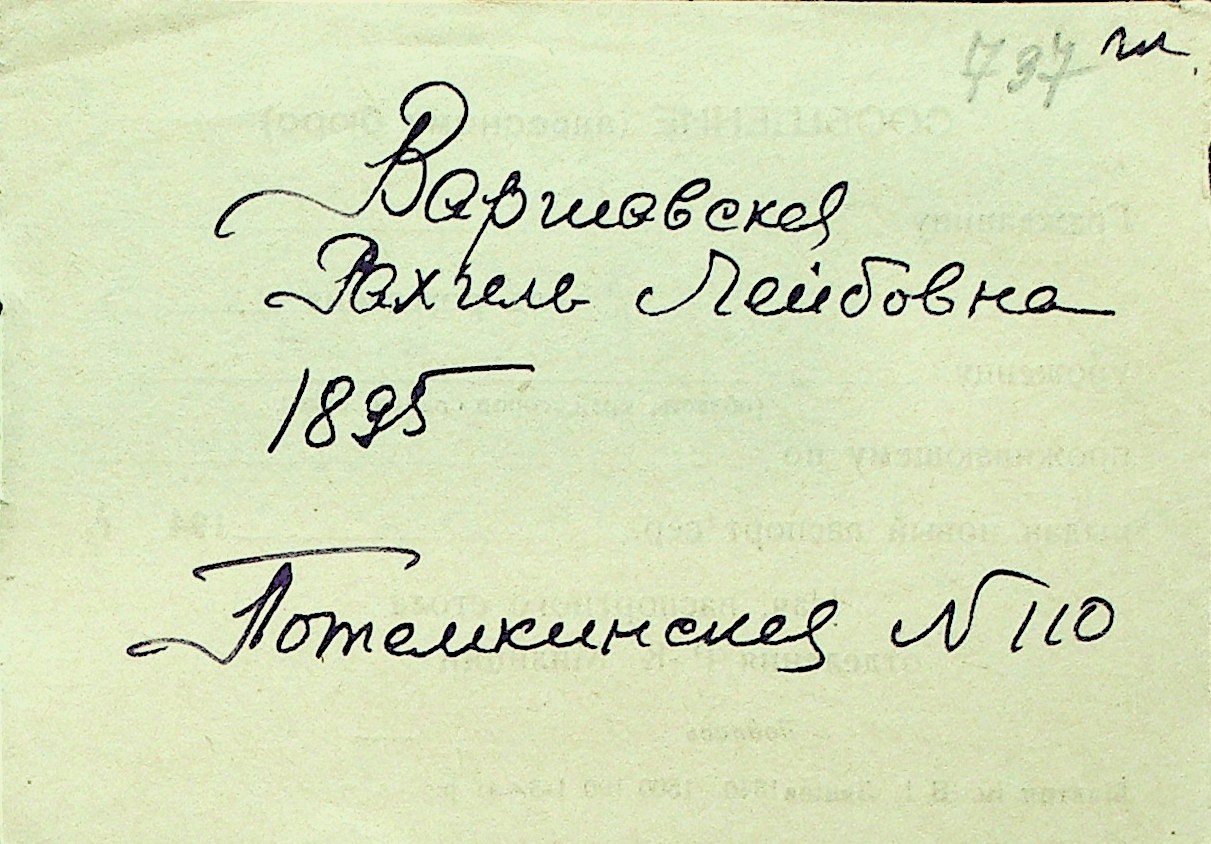 737
Варшавская
Рахиль Лейбовна
1895
Потемкинская N 110